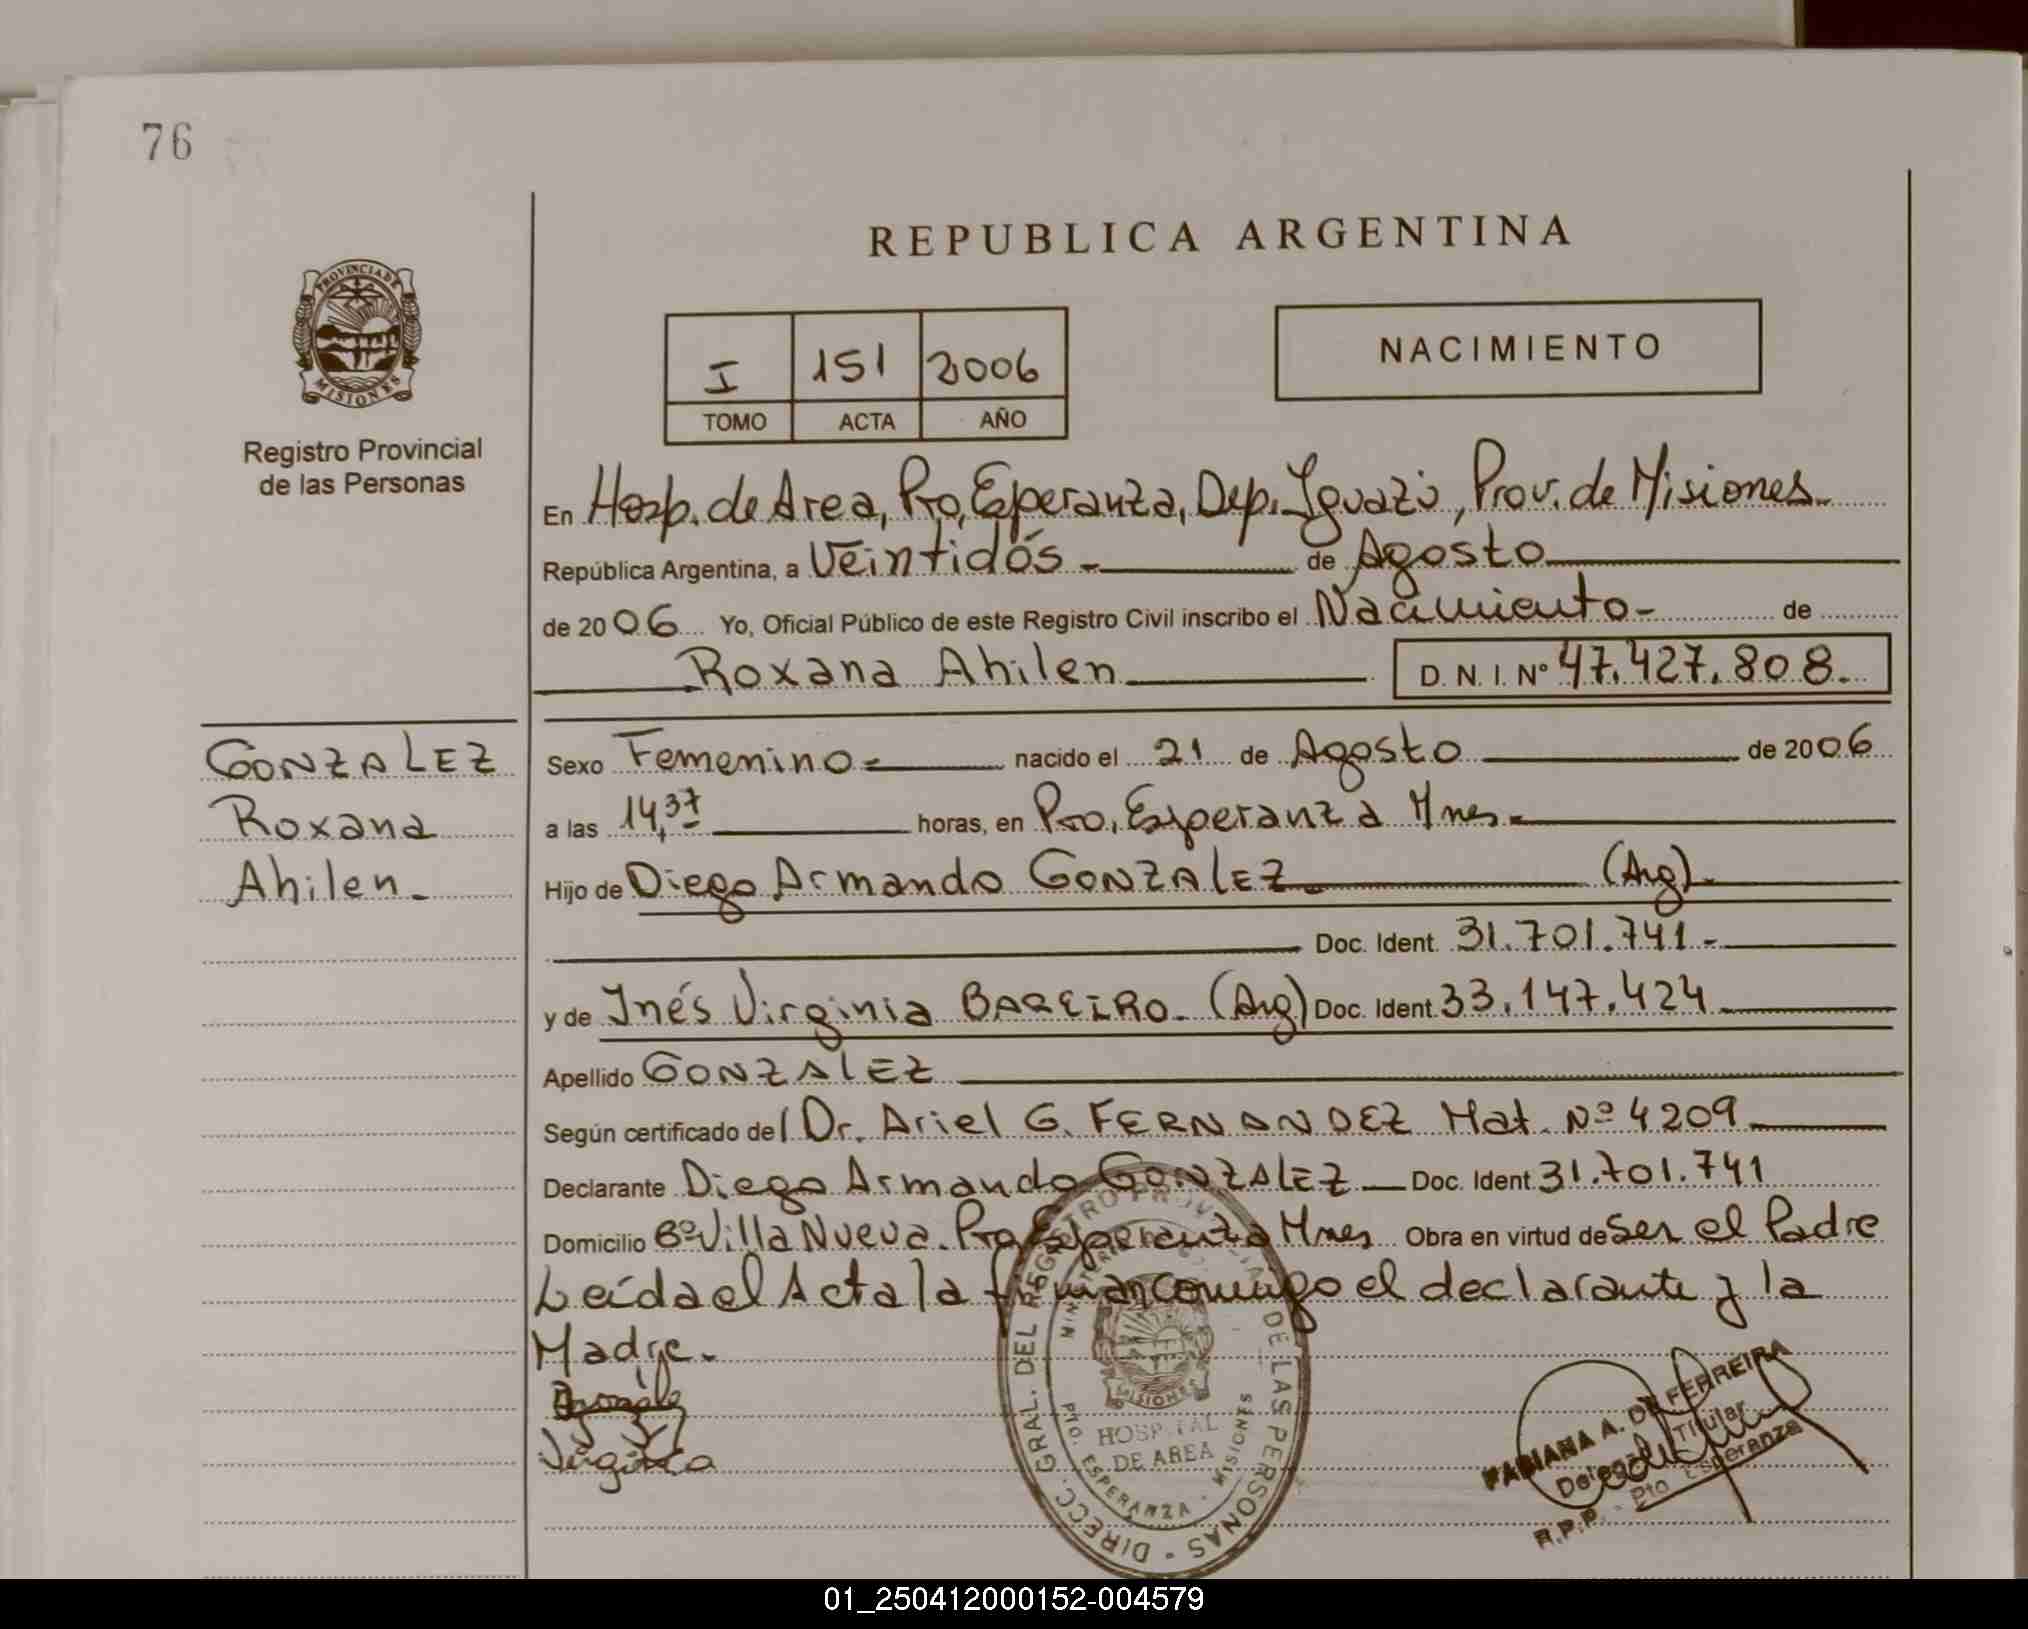 76
REPUBLICA ARGENTINA
PROVINCIA DE
MISIONES
Registro Provincial
de las Personas
I 151 2006
TOMO ACTA AÑO
NACIMIENTO
En Hosp. de Area, Pto, Esperanza, Dep. Iguazú, Prov. de Misiones.
República Argentina, a Veintidós - de Agosto
de 2006 Yo, Oficial Público de este Registro Civil inscribo el Nacimiento - de
Roxana Ahilen D. N. I. Nº 47.427.808.
GONZALEZ
Roxana
Ahilen.
Sexo Femenino nacido el 21 de Agosto de 2006
a las 14,37 horas, en Pto, Esperanza Mnes.
Hijo de Diego Armando GONZALEZ (Arg).
Doc. Ident. 31.701.741-
y de Inés Virginia BAREIRO. (Arg) Doc. Ident. 33.147.424
Apellido GONZALEZ
Según certificado del Dr. Ariel G. FERNANDEZ Mat. Nº 4209
Declarante Diego Armando GONZALEZ Doc. Ident 31.701.741
Domicilio Bº Villa Nueva. Pto Esperanza Mnes Obra en virtud de Ser el Padre
Leída el Acta la firman conmigo el declarante y la
Madre.
DIRECC. GRAL. DEL REGISTRO PROVINCIAL DE LAS PERSONAS
MISIONES
HOSPITAL
DE AREA
PTO. ESPERANZA - MISIONES
FABIANA A. DE FERREIRA
Titular
R.P.P. - Pto Esperanza
01_250412000152-004579